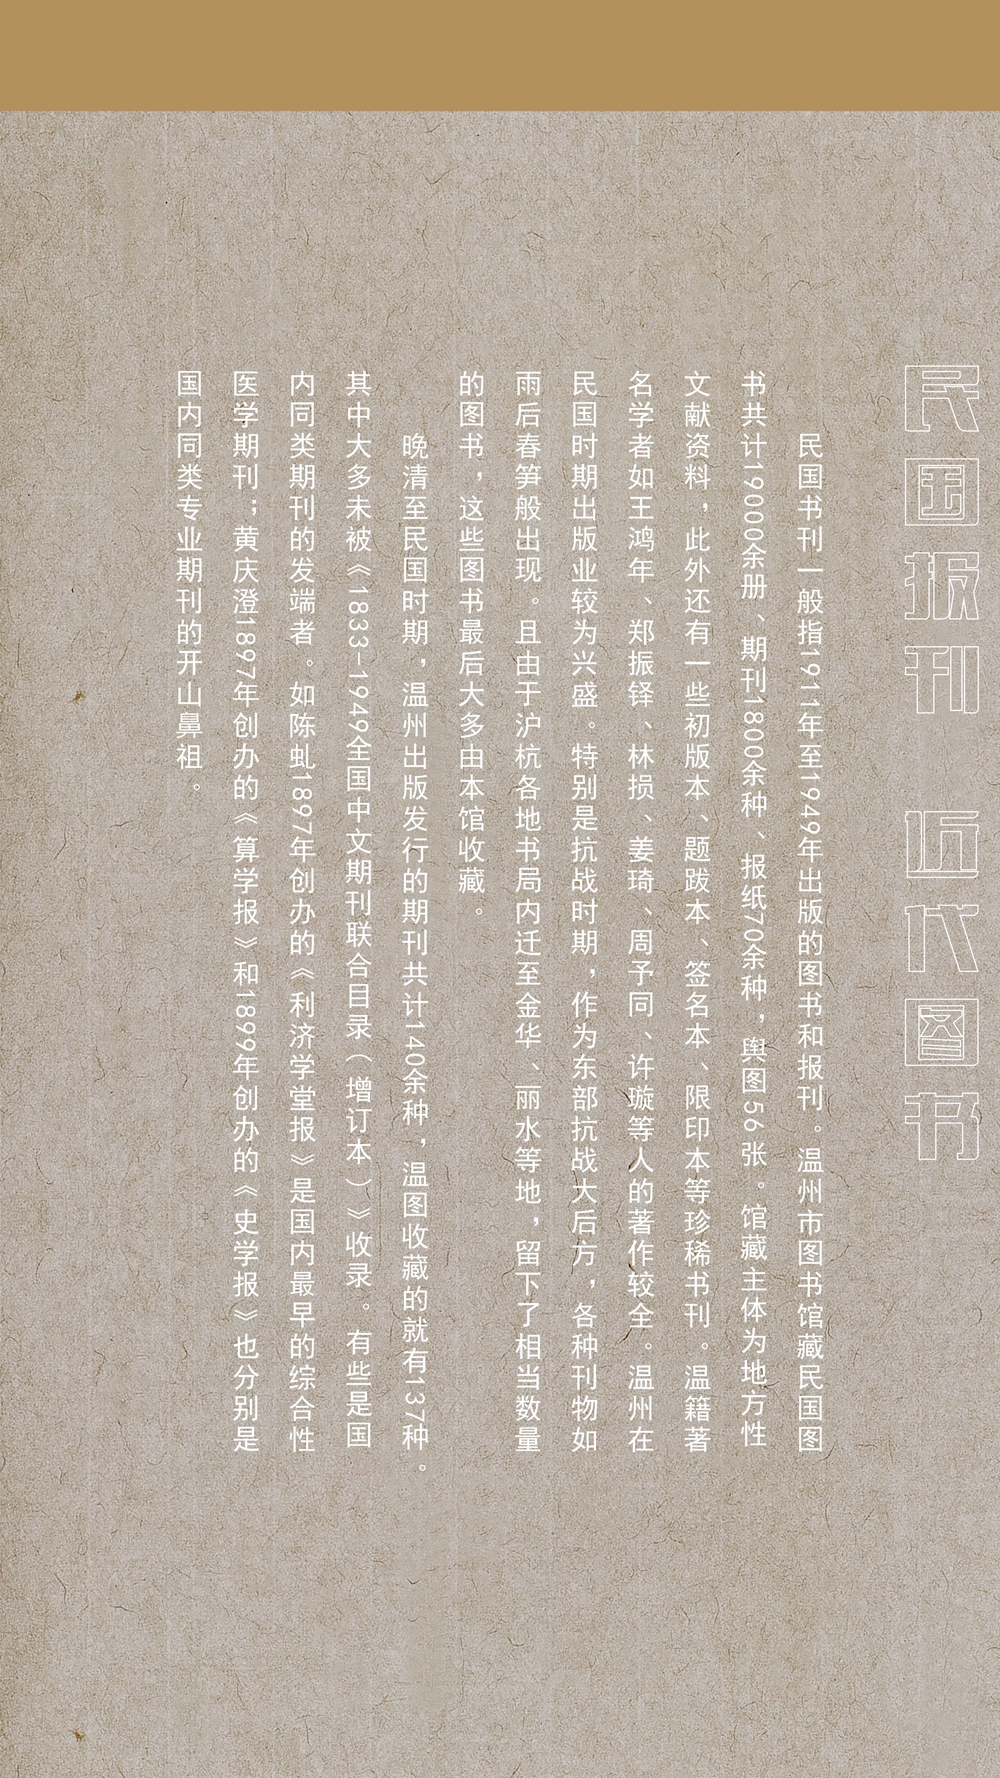 民国报刊 近代图书
民国书刊一般指1911年至1949年出版的图书和报刊。温州市图书馆藏民国图
书共计19000余册、期刊1800余种、报纸70余种，舆图56张。馆藏主体为地方性
文献资料，此外还有一些初版本、题跋本、签名本、限印本等珍稀书刊。温籍著
名学者如王鸿年、郑振铎、林损、姜琦、周予同、许璇等人的著作较全。温州在
民国时期出版业较为兴盛。特别是抗战时期，作为东部抗战大后方，各种刊物如
雨后春笋般出现。且由于沪杭各地书局内迁至金华、丽水等地，留下了相当数量
的图书，这些图书最后大多由本馆收藏。
晚清至民国时期，温州出版发行的期刊共计140余种，温图收藏的就有137种。
其中大多未被《1833-1949全国中文期刊联合目录（增订本）》收录。有些是国
内同类期刊的发端者。如陈虬1897年创办的《利济学堂报》是国内最早的综合性
医学期刊；黄庆澄1897年创办的《算学报》和1899年创办的《史学报》也分别是
国内同类专业期刊的开山鼻祖。